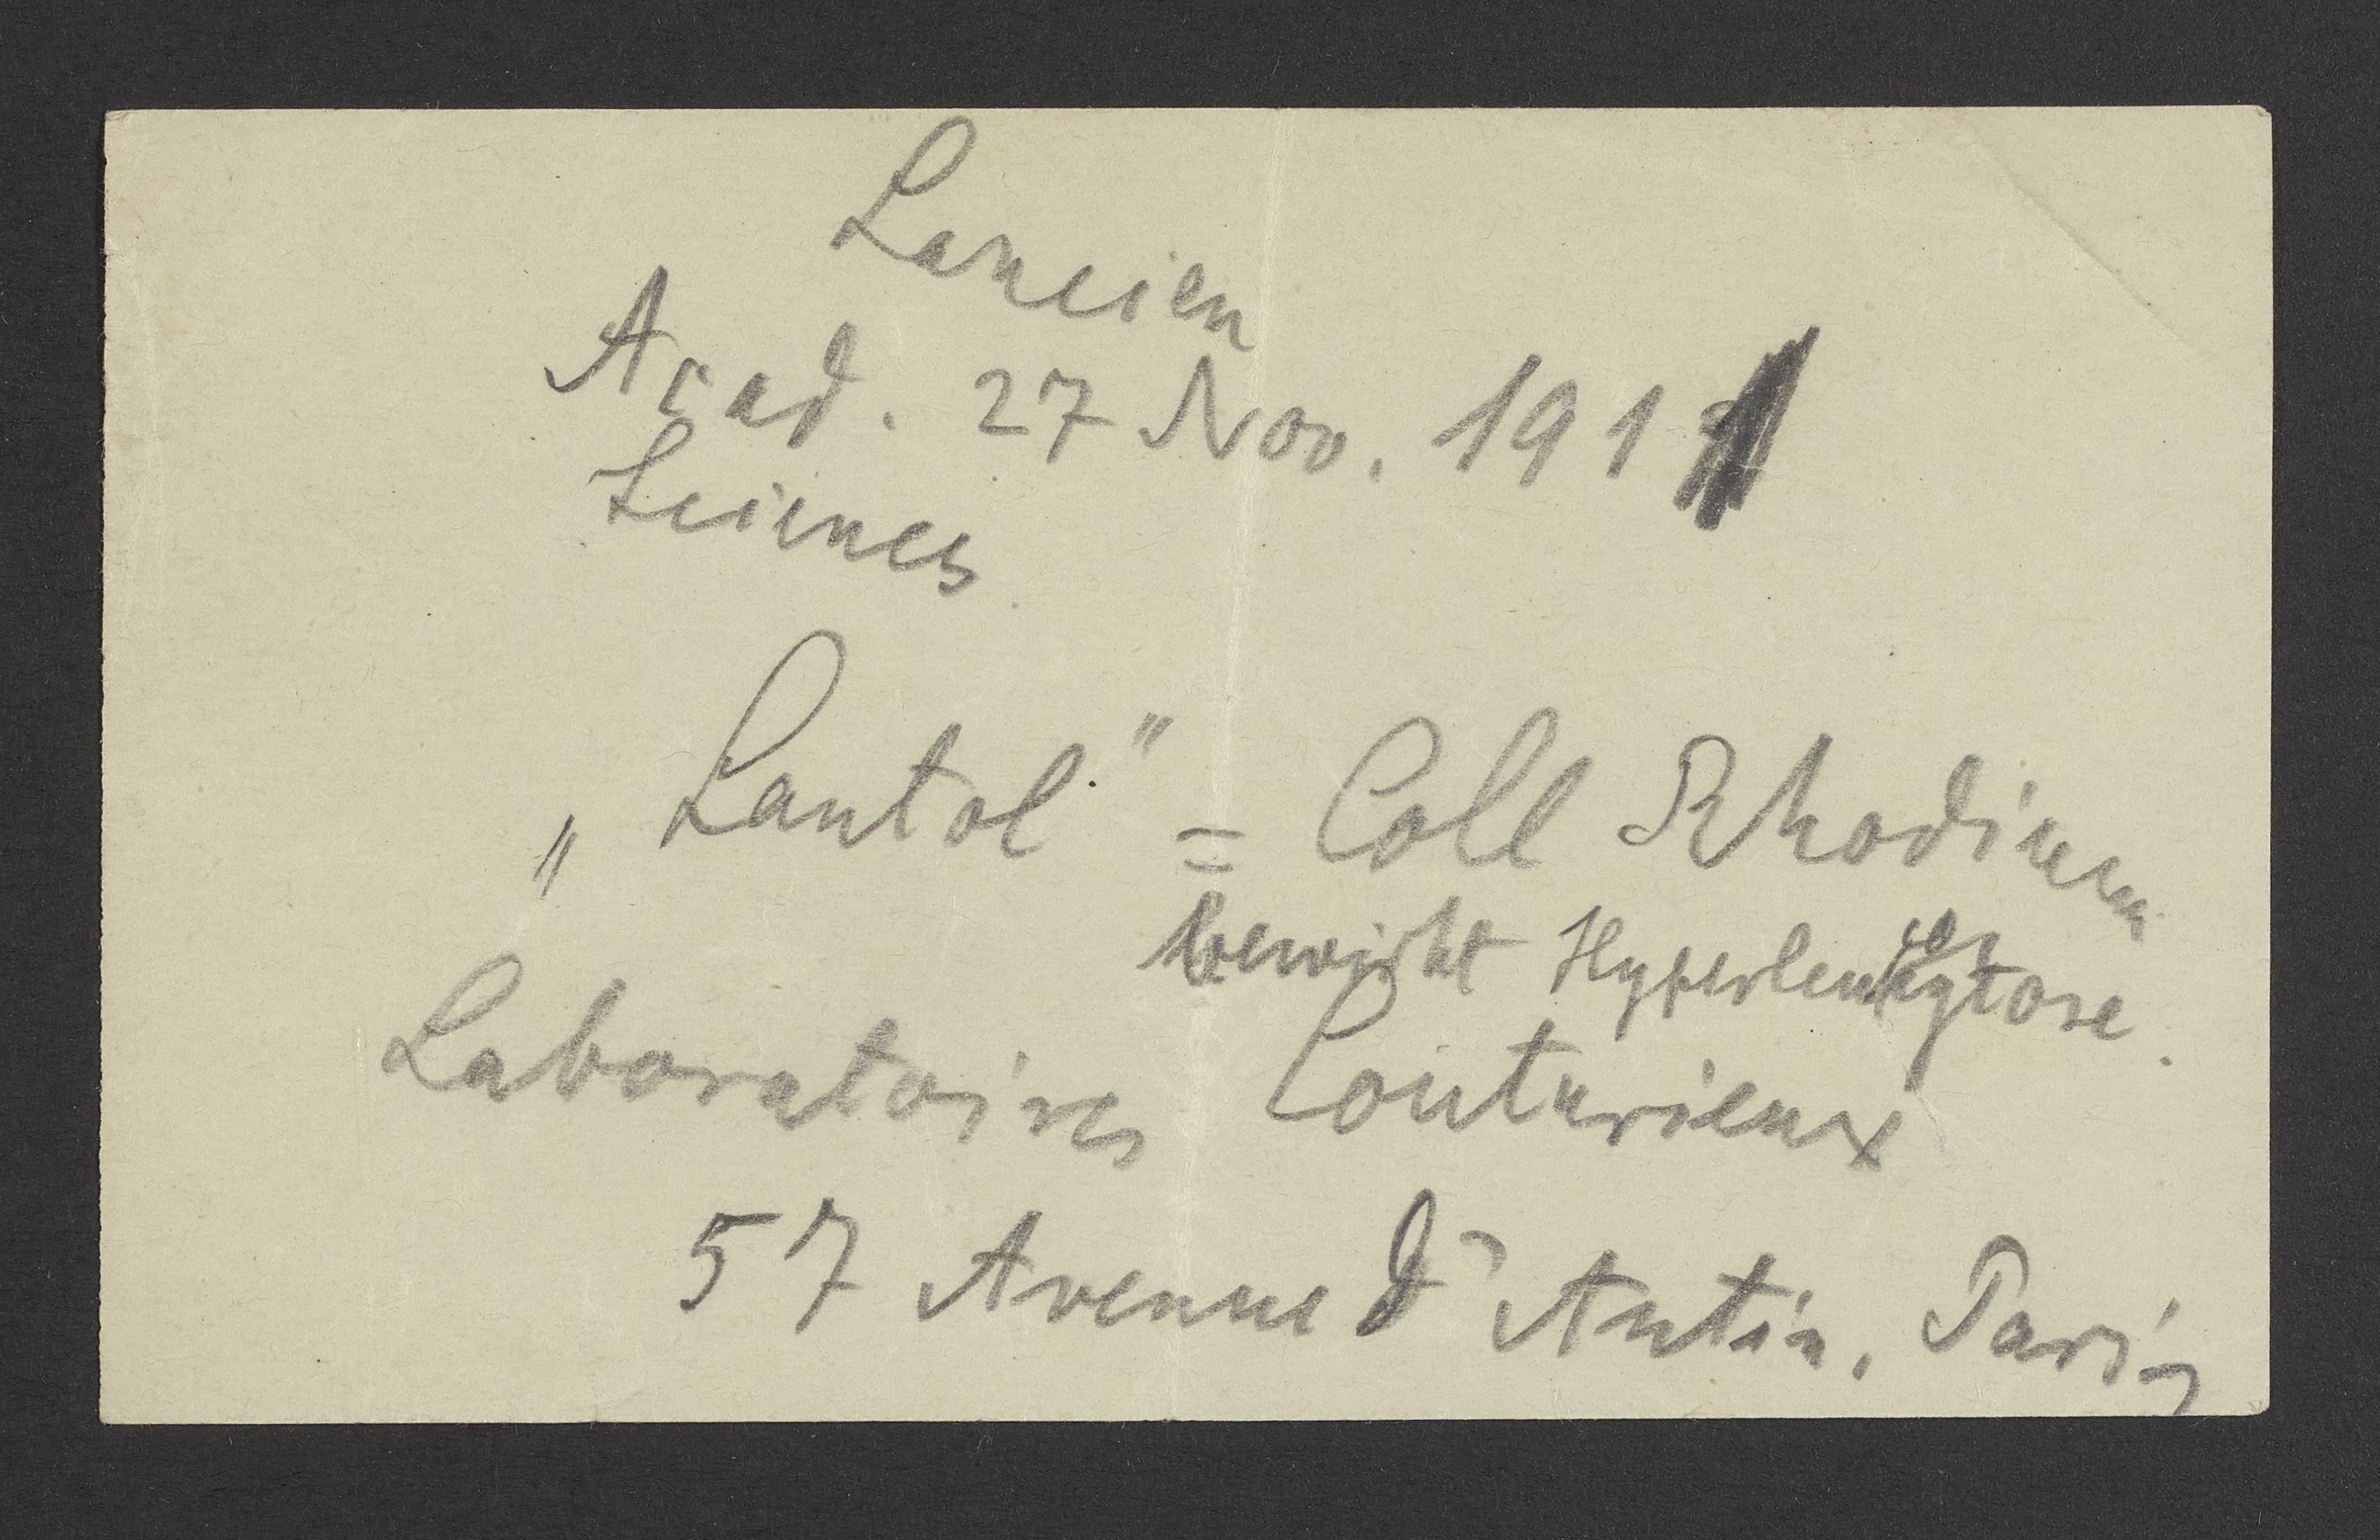 Lancien
Acad. 27 Nov. 1911
Sciences
„Lantol" = Coll Rhodium
bewirkt Hyperleukocytose.
Laboratoires Couturieux
57 Avenue d'Antin, Paris